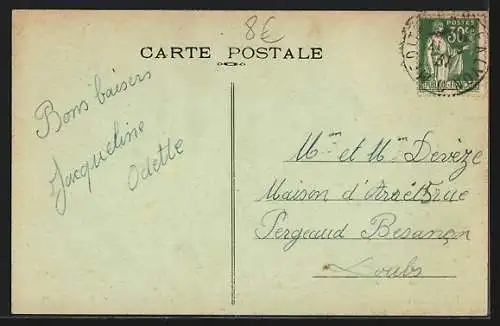 8€
CARTE POSTALE
POSTES
30c
Bons baisers
Jacqueline
Odette
Mme et Mr Devèze
Maison d'Arrêt Rue
Pergeaud Besançon
Doubs